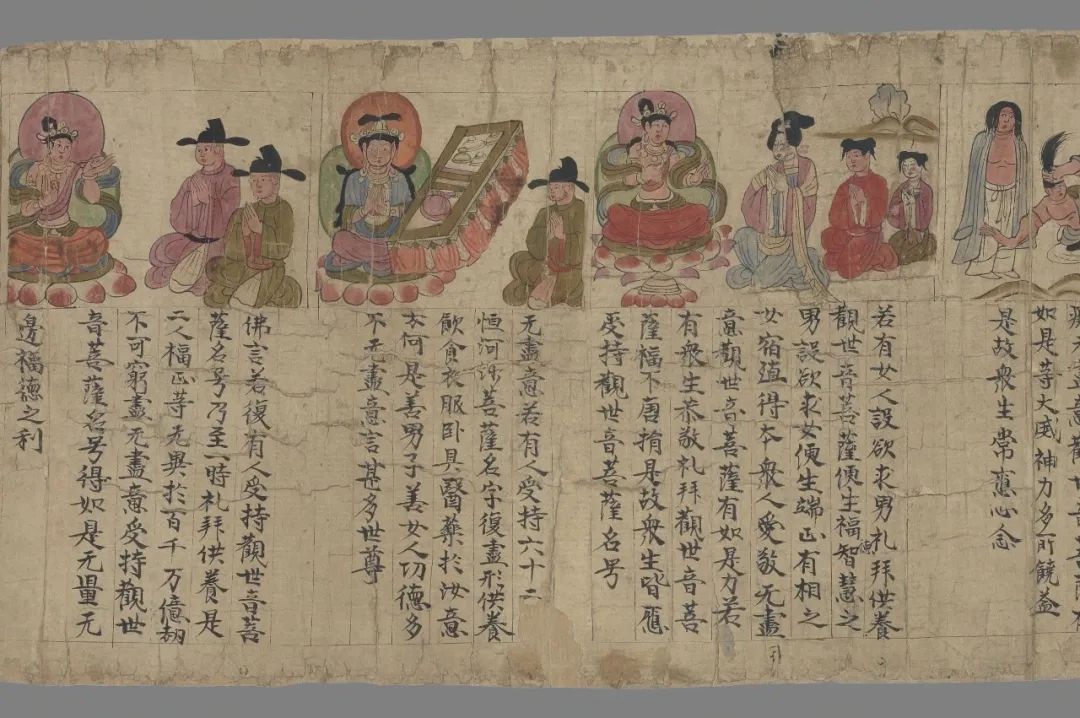 如是等大威神力多所饒益
是故衆生常應心念
若有女人設欲求男礼拜供養
觀世音菩薩便生福德智慧之
男設欲求女便生端正有相之
女宿殖得本衆人愛敬无盡
意觀世音菩薩有如是力若
有衆生恭敬礼拜觀世音菩
薩福不唐捐是故衆生皆應
受持觀世音菩薩名号
无盡意若有人受持六十二
恒河沙菩薩名字復盡形供養
飲食衣服卧具醫藥於汝意
云何是善男子善女人功德多
不无盡意言甚多世尊
佛言若復有人受持觀世音菩
薩名号乃至一時礼拜供養是
二人福正等无異於百千万億劫
不可窮盡无盡意受持觀世
音菩薩名号得如是无量无
邊福德之利